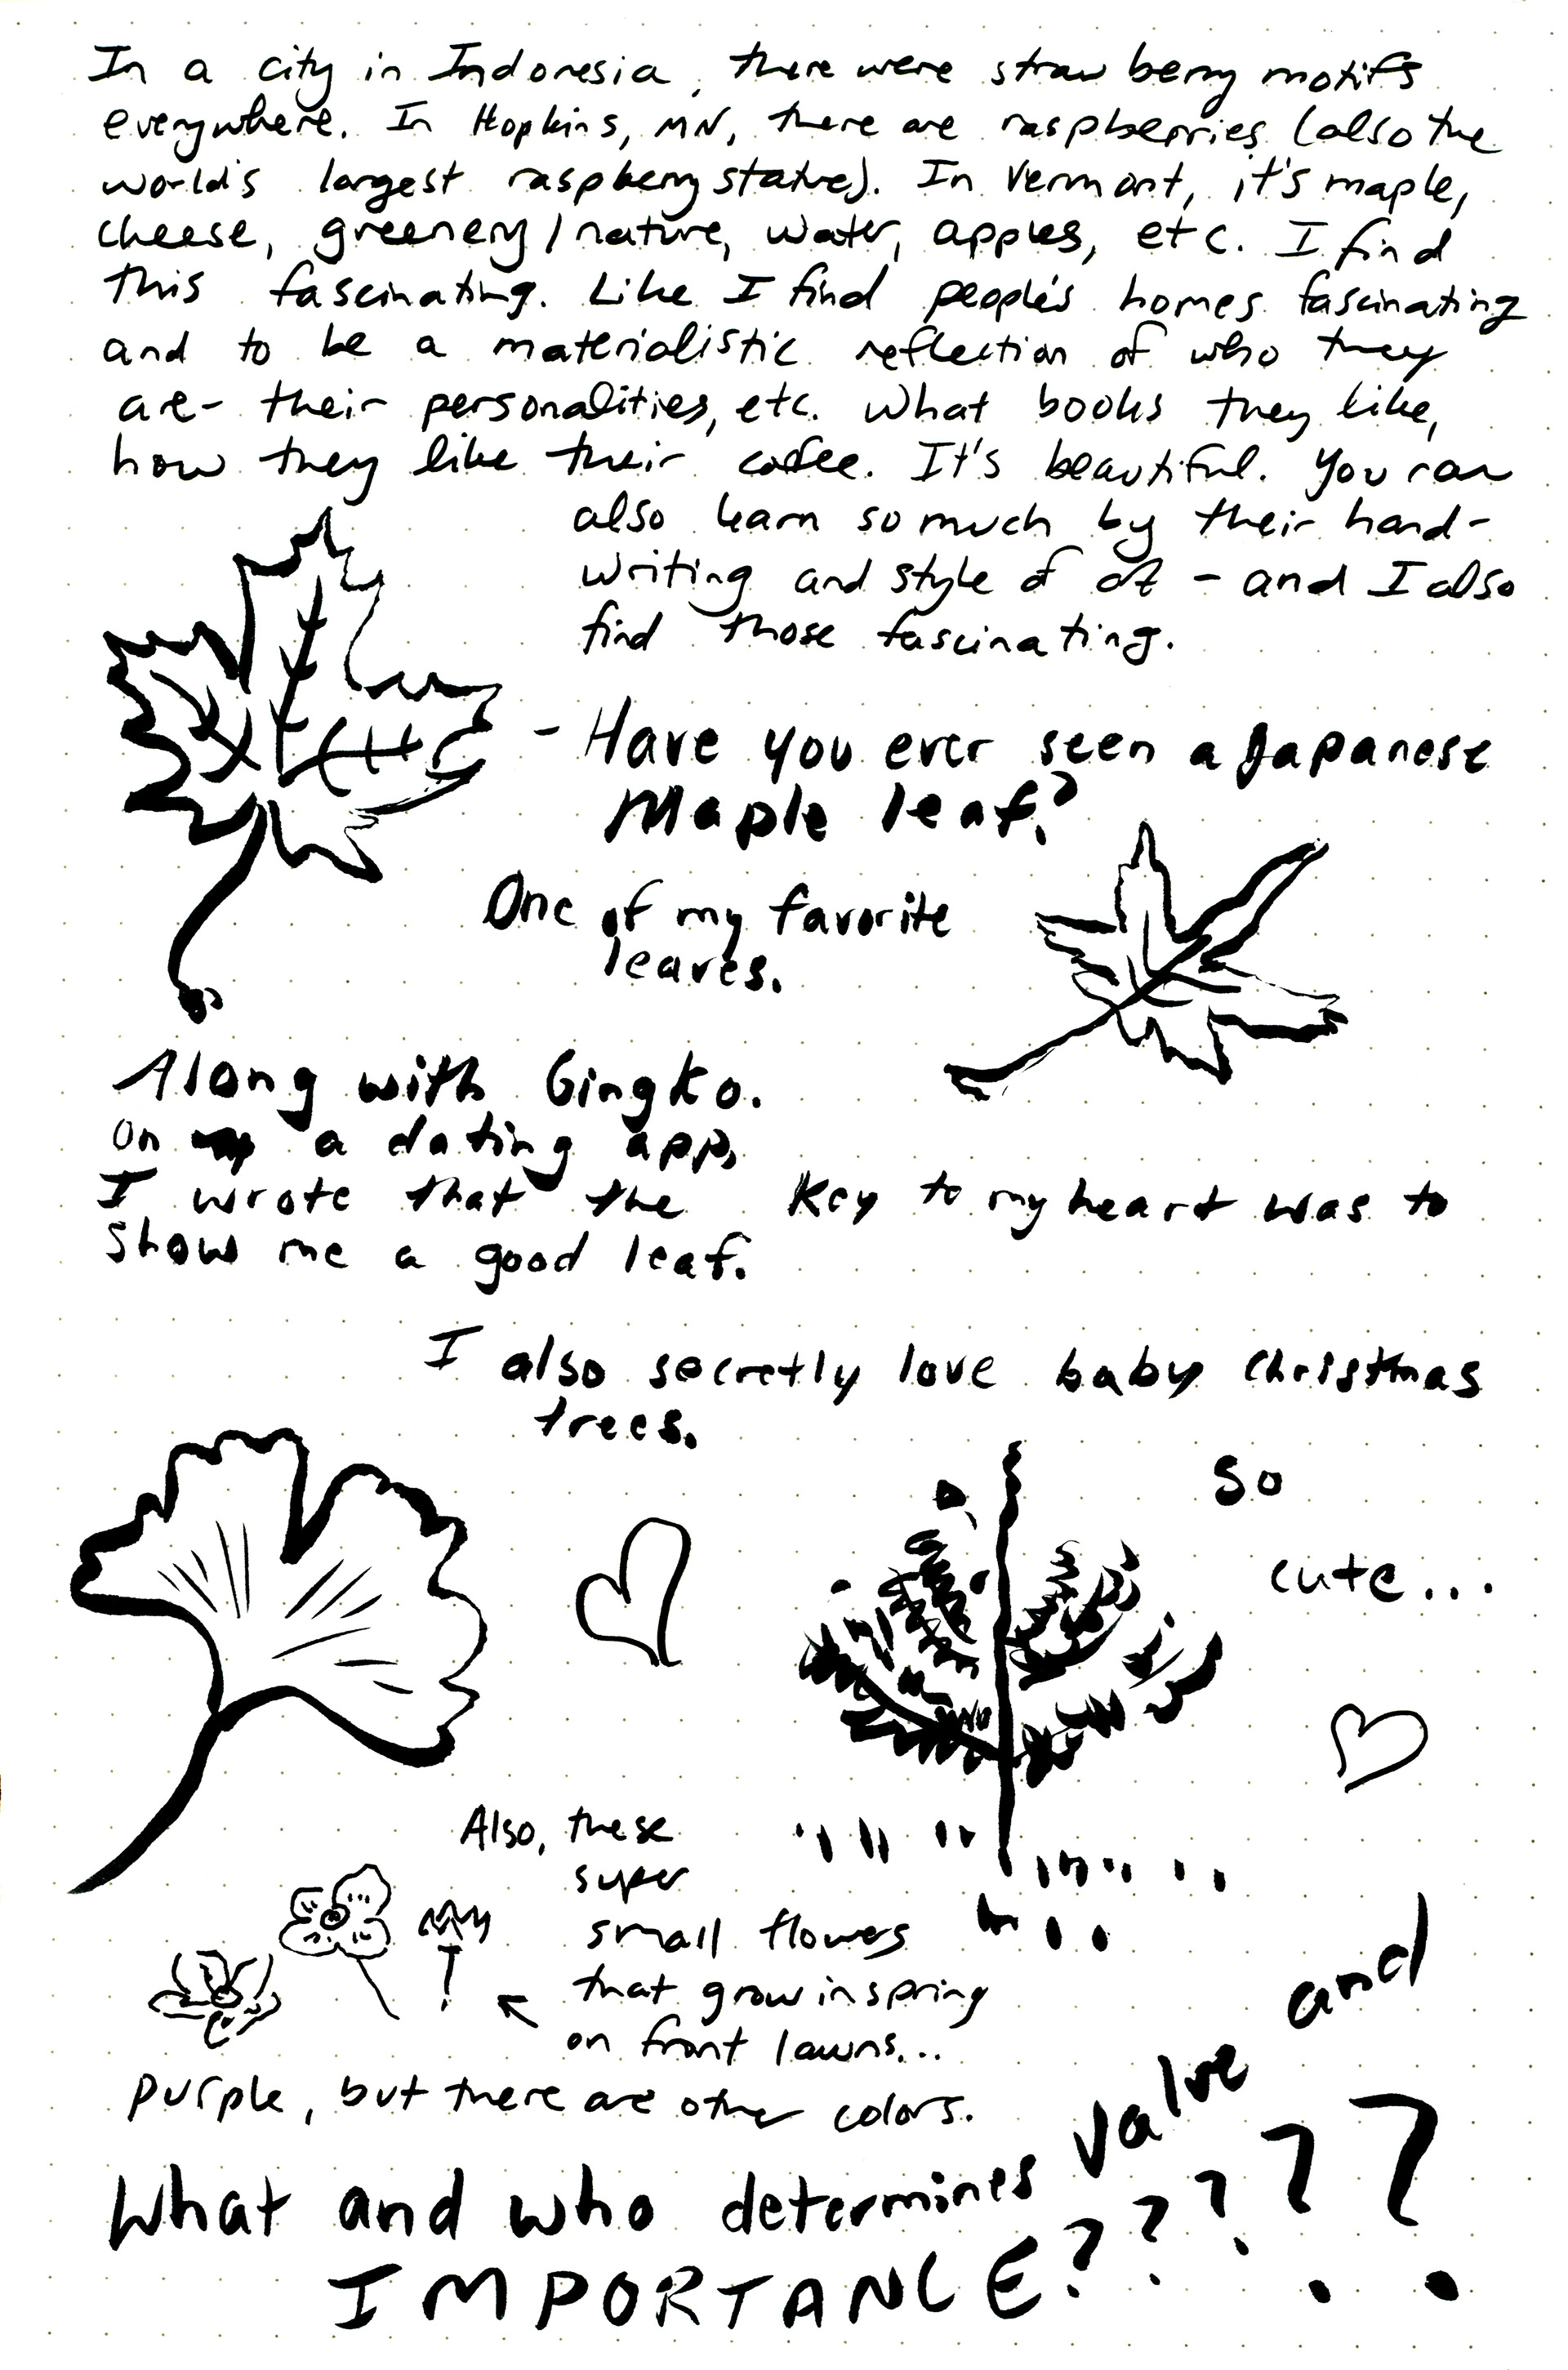 In a city in Indonesia, there were strawberry motifs
everywhere. In Hopkins, MN, there are raspberries (also the
world's largest raspberry statue). In Vermont, it's maple,
cheese, greenery/nature, water, apples, etc. I find
this fascinating. Like I find people's homes fascinating
and to be a materialistic reflection of who they
are- their personalities, etc. What books they like,
how they like their coffee. It's beautiful. You can
also learn so much by their hand-
writing and style of art - and I also
find those fascinating.
- Have you ever seen a Japanese
Maple leaf?
One of my favorite
leaves.
Along with Gingko.
On a dating app,
I wrote that the key to my heart was to
show me a good leaf.
I also secretly love baby Christmas
trees.
so
cute...
Also, these
super
small flowers
that grow in spring
on front lawns...
purple, but there are other colors.
What and who determines value and
IMPORTANCE?????